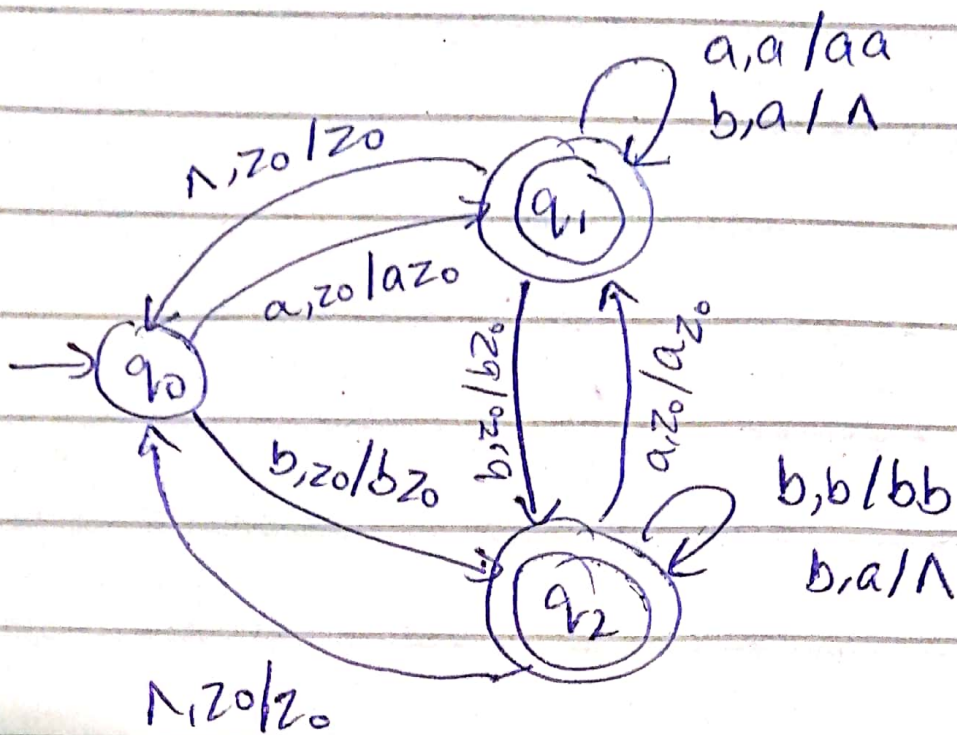 a,a/aa
b,a/Λ
Λ,z0/z0
q1
a,z0/az0
q0
b,z0/bz0
a,z0/az0
b,z0/bz0
b,b/bb
b,a/Λ
q2
Λ,z0/z0